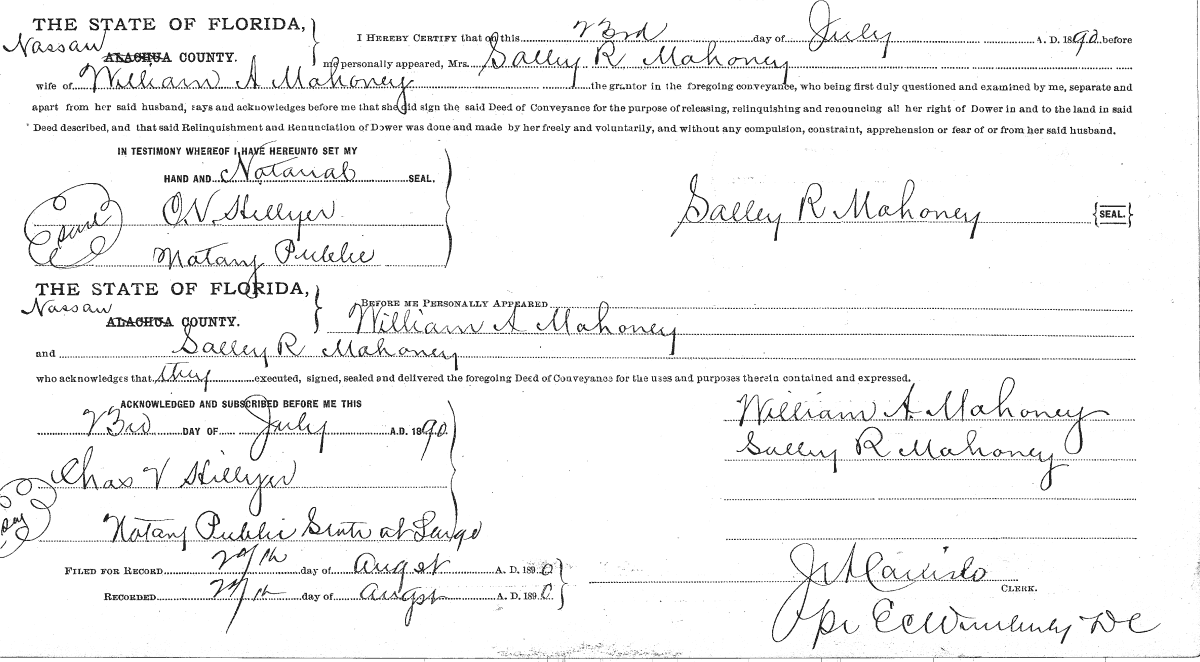 THE STATE OF FLORIDA,
Nassau
ALACHUA COUNTY.
I HEREBY CERTIFY that on this 23rd day of July A. D. 1890 before
me personally appeared, Mrs. Salley R Mahoney
wife of William A Mahoney the grantor in the foregoing conveyance, who being first duly questioned and examined by me, separate and
apart from her said husband, says and acknowledges before me that she did sign the said Deed of Conveyance for the purpose of releasing, relinquishing and renouncing all her right of Dower in and to the land in said
Deed described, and that said Relinquishment and Renunciation of Dower was done and made by her freely and voluntarily, and without any compulsion, constraint, apprehension or fear of or from her said husband.
IN TESTIMONY WHEREOF I HAVE HEREUNTO SET MY
HAND AND Notarial SEAL.
C.V. Hillyer
Notary Public
Salley R Mahoney {SEAL.}
THE STATE OF FLORIDA,
Nassau
ALACHUA COUNTY.
BEFORE ME PERSONALLY APPEARED
William A Mahoney
and Salley R Mahoney
who acknowledges that they executed, signed, sealed and delivered the foregoing Deed of Conveyance for the uses and purposes therein contained and expressed.
ACKNOWLEDGED AND SUBSCRIBED BEFORE ME THIS
23rd DAY OF July A.D. 1890.
Chas V Hillyer
Notary Public State at Large
William A. Mahoney
Salley R Mahoney
FILED FOR RECORD day of August A. D. 1890
RECORDED day of Augst A. D. 1890
CLERK.
DC